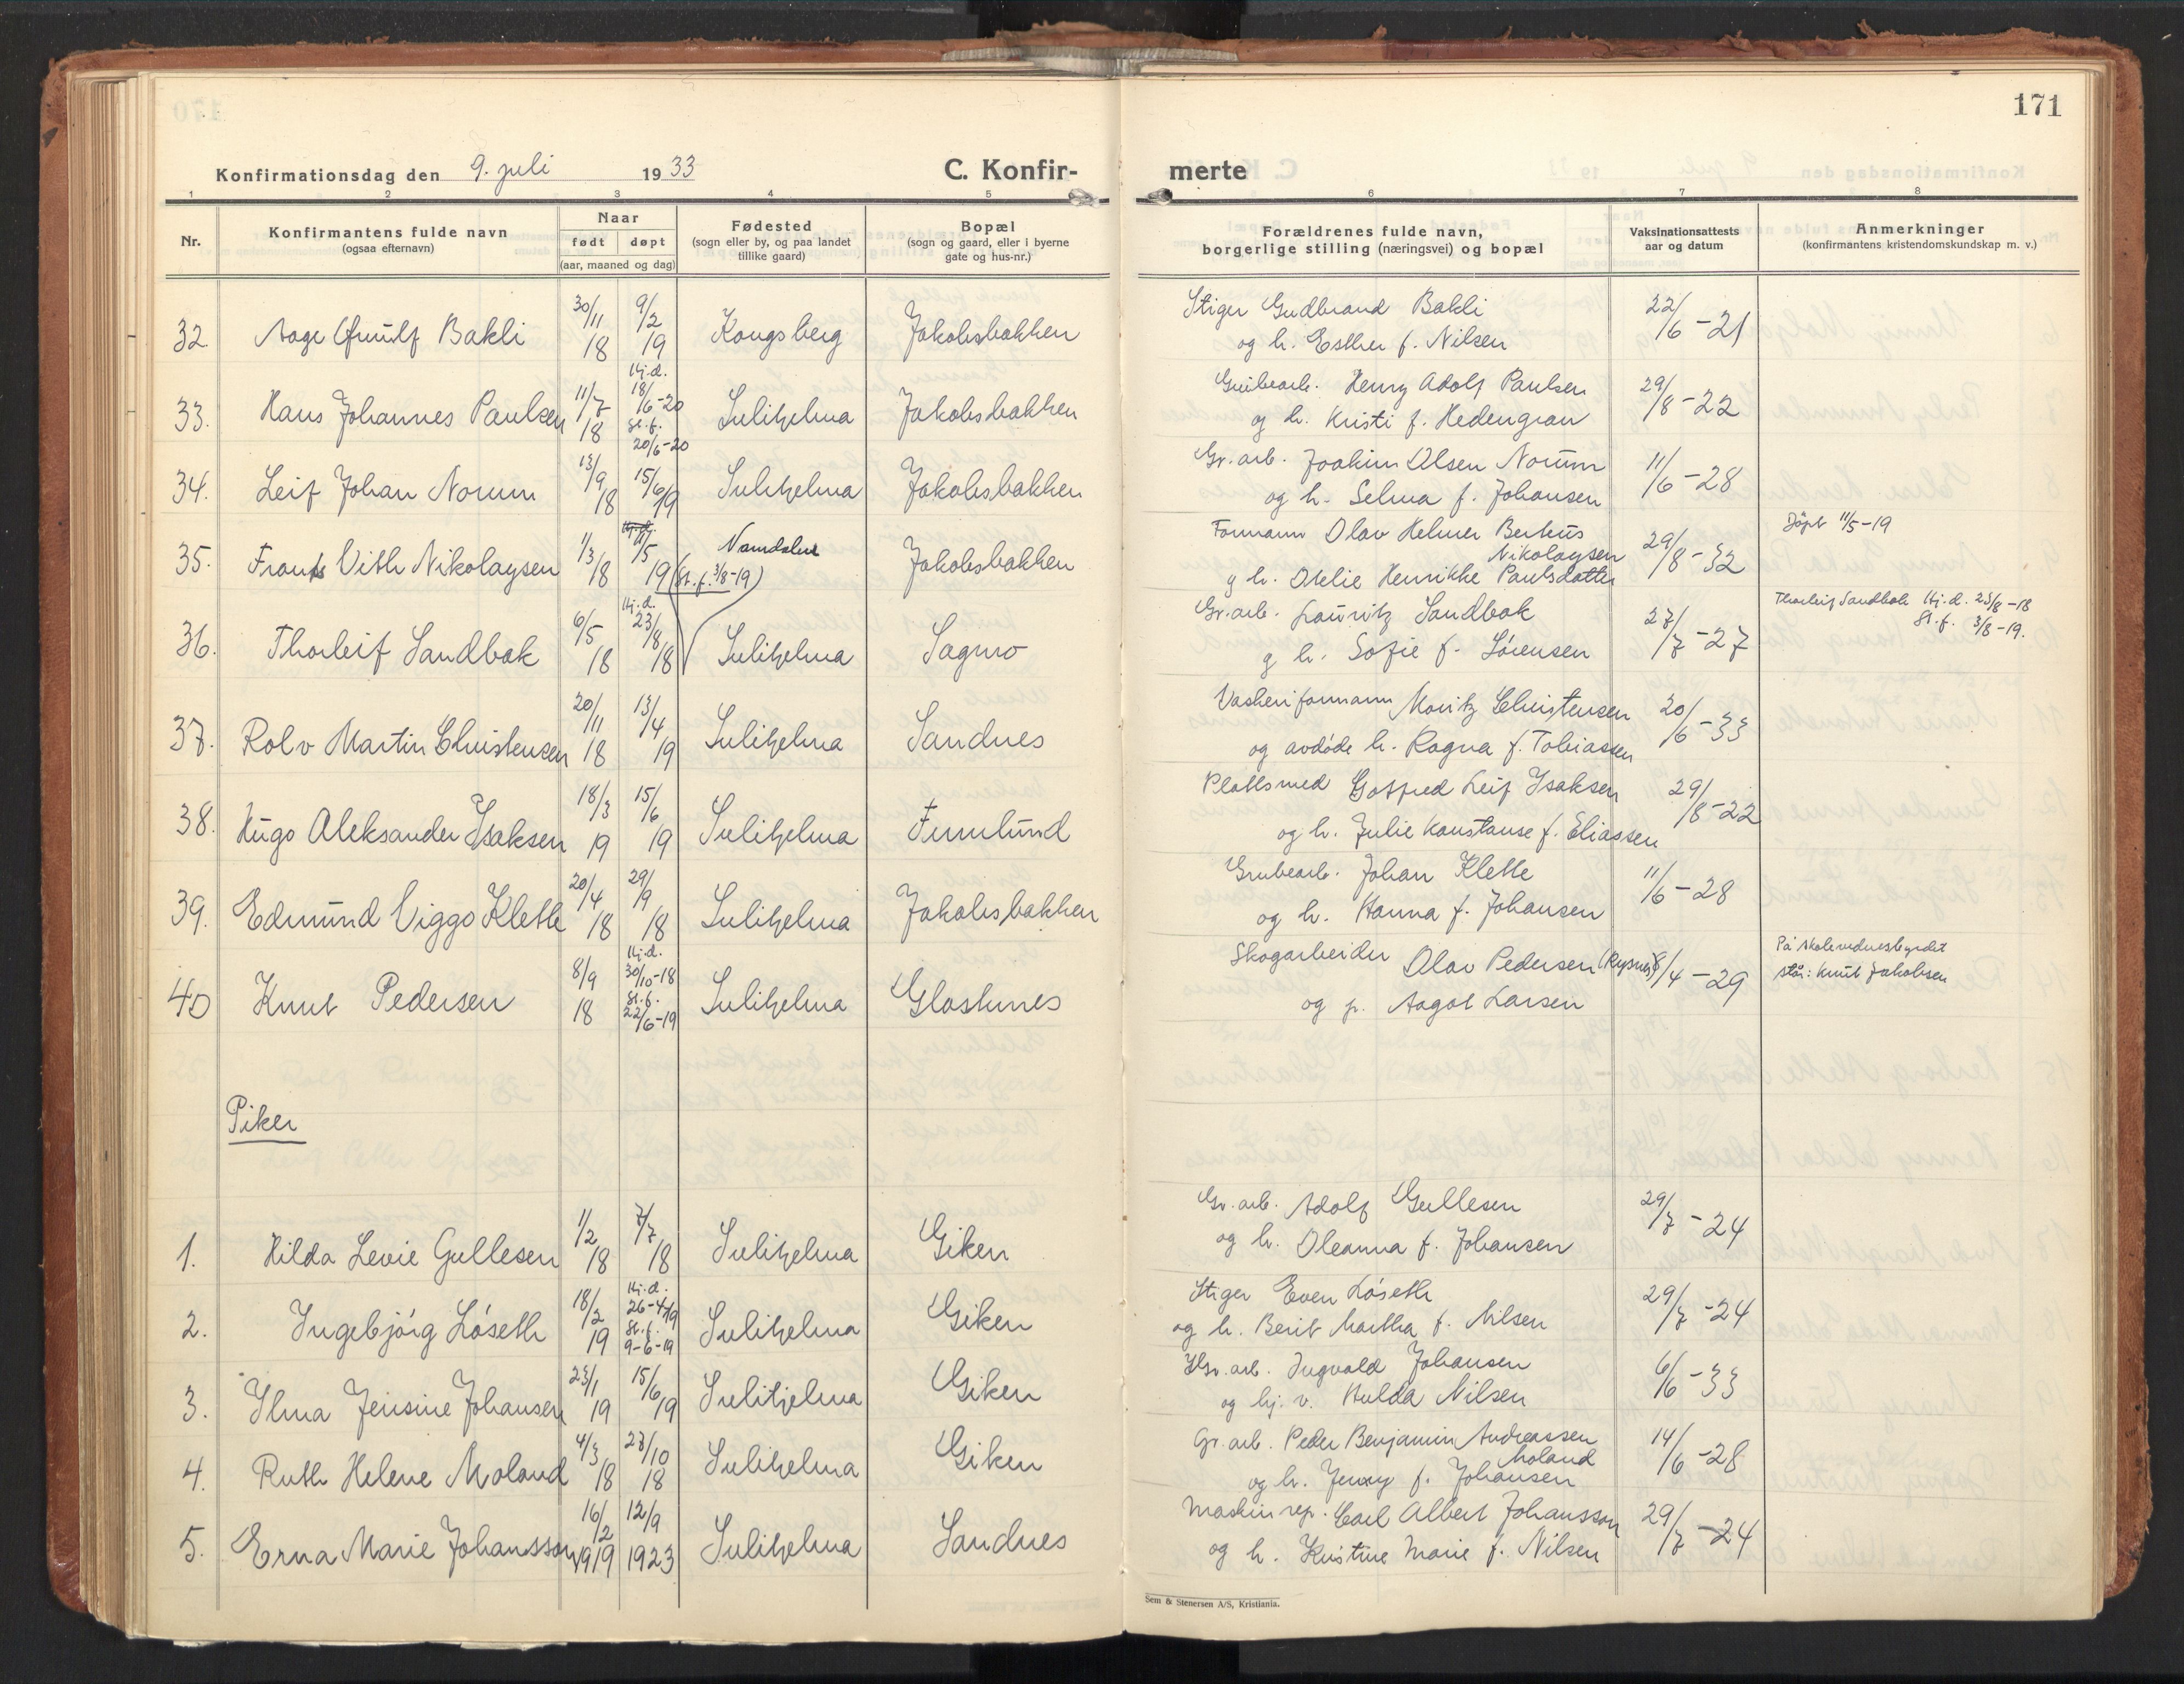 171
Konfirmationsdag den 9. juli 1933
C. Konfir-
merte
1 2 3 4 5 6 7 8
Nr.
Konfirmantens fulde navn
(ogsaa efternavn)
Naar
født døpt
(aar, maaned og dag)
Fødested
(sogn eller by, og paa landet
tillike gaard)
Bopæl
(sogn og gaard, eller i byerne
gate og hus-nr.)
Forældrenes fulde navn,
borgerlige stilling (næringsvei) og bopæl
Vaksinationsattests
aar og datum
Anmerkninger
(konfirmantens kristendomskundskap m. v.)
32. Aage Bakli 30/11 18 9/2 19 Kongsberg Jakobsbakken
Stiger Gudbrand Bakli
og h. Esther f. Nilsen
22/6-21
33. Hans Johannes Paulsen 11/7 18 Hj.d. 18/6-20 st.f. 20/6-20 Sulitjelma Jakobsbakken
Grubearb. Henry Adolf Paulsen
og h. Kristi f. Hedengran
29/8-22
34. Leif Johan Norum 13/9 18 15/6 19 Sulitjelma Jakobsbakken
Gr.arb. Joakim Olsen Norum
og h. Selma f. Johansen
11/6-28
35. Frants Vith Nikolaysen 1/3 18 11/5 19 (st.f. 3/8-19) Namdalen Jakobsbakken
Formann Olav Helmer Berteus
Nikolaysen
g h. Otelie Henrikke Paulsdatter
29/8-32
Döpt 11/5-19
36. Thorleif Sandbak 6/5 18 Hj.d. 23/8 18 Sulitjelma Sagmo
Gr.arb. Lauritz Sandbak
g h. Sofie f. Sörensen
27/7-27
Thorleif Sandbak Hj.d. 23/8-18
St.f. 3/8-19.
37. Rolv Martin Christensen 20/11 18 13/4 19 Sulitjelma Sandnes
Vaskeriformann Moritz Christensen
og avdöde h. Ragna f. Tobiassen
20/6-33
38. Hugo Aleksander Isaksen 18/3 19 15/6 19 Sulitjelma Furulund
Plattsmed Gotfred Leif Isaksen
og h. Julie Konstanse f. Eliassen
29/8-22
39. Edmund Viggo Klette 20/4 18 29/9 18 Sulitjelma Jakobsbakken
Grubearb. Johan Klette
og h. Hanna f. Johansen
11/6-28
40 Knut Pedersen 8/9 18 Hj.d. 30/10-18 St.f. 22/6-19 Sulitjelma Glastunes
Skogarbeider Olav Pedersen
og p. Aagot Larsen
/4-29
På skolevidnesbyrdet
står: Knut Jakobsen
Piker
1. Hilda Levie Gullesen 1/2 18 7/7 18 Sulitjelma Giken
Gr.arb. Adolf Gullesen
og h. Oleanna f. Johansen
29/7-24
2. Ingebjörg Löseth 18/2 19 Hj.d. 26-4-19 St.f. 9-6-19 Sulitjelma Giken
Stiger Even Löseth
og h. Berit Martha f. Nilsen
29/7-24
3. Ilma Jensine Johansen 23/1 19 15/6 19 Sulitjelma Giken
Gr.arb. Ingvald Johansen
og hj. v. Hulda Nilsen
6/6-33
4. Ruth Helene Moland 4/3 18 27/10 18 Sulitjelma Giken
Gr.arb. Peder Benjamin Andreassen
Moland
og h. Jenny f. Johansen
14/6-28
5. Erna Marie Johansson 16/2 1919 12/9 1923 Sulitjelma Sandnes
Maskinrep. Carl Albert Johansson
og h. Kristine Marie f. Nilsen
29/7-24
Sem & Stenersen A/S, Kristiania.